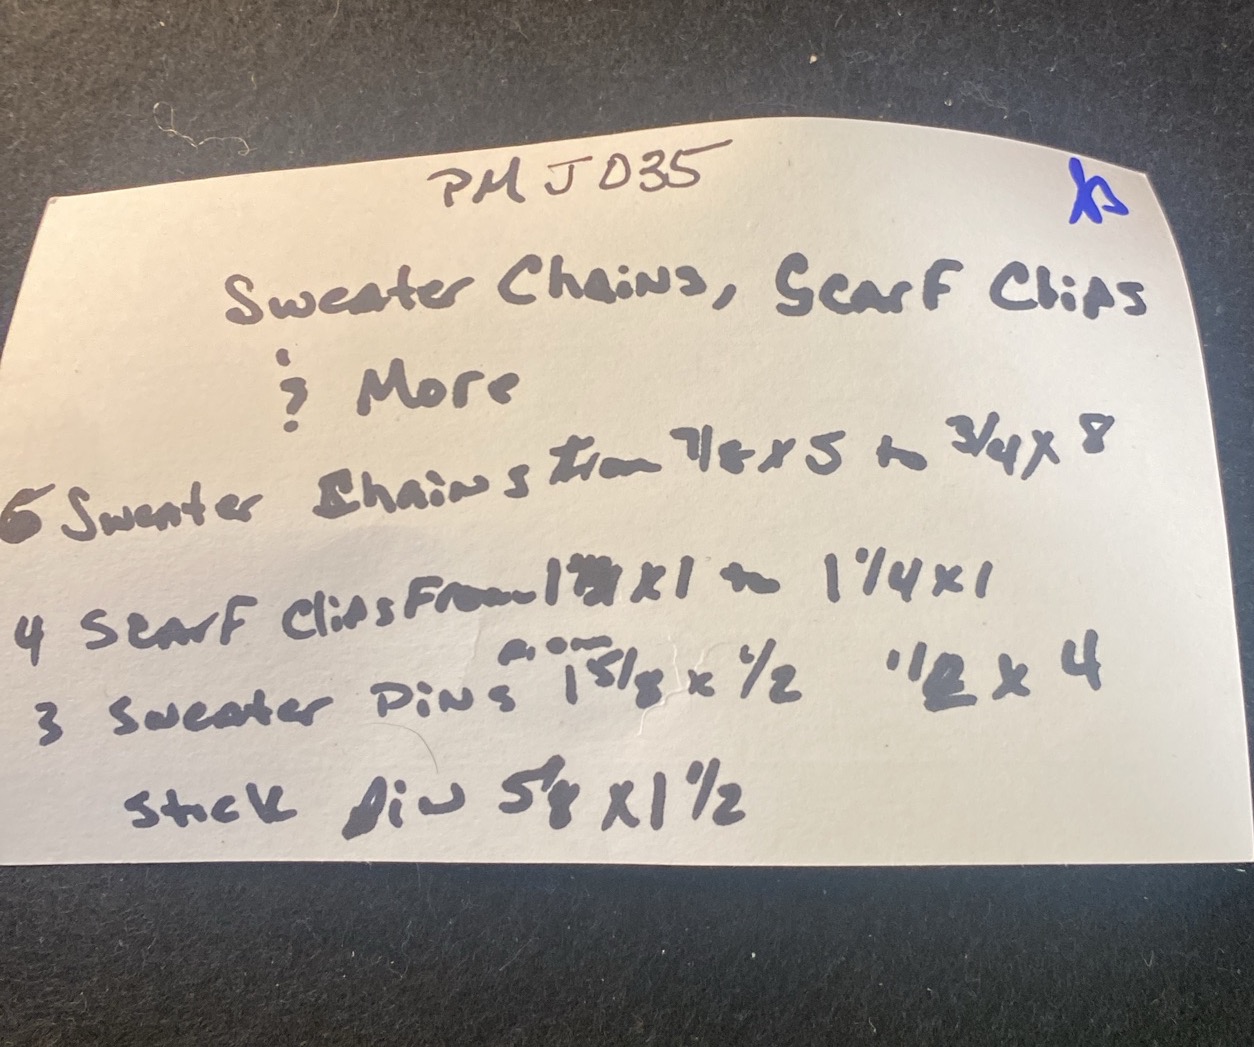 PMJ035
Sweater Chains, Scarf Clips
& More
6 Sweater Chains from 7/8 x 5 to 3/4 x 8
4 Scarf Clips From 1 x 1 to 1 1/4 x 1
3 Sweater Pins From 1 5/8 x 1/2 1/2 x 4
Stick Pin 5/8 x 1 1/2